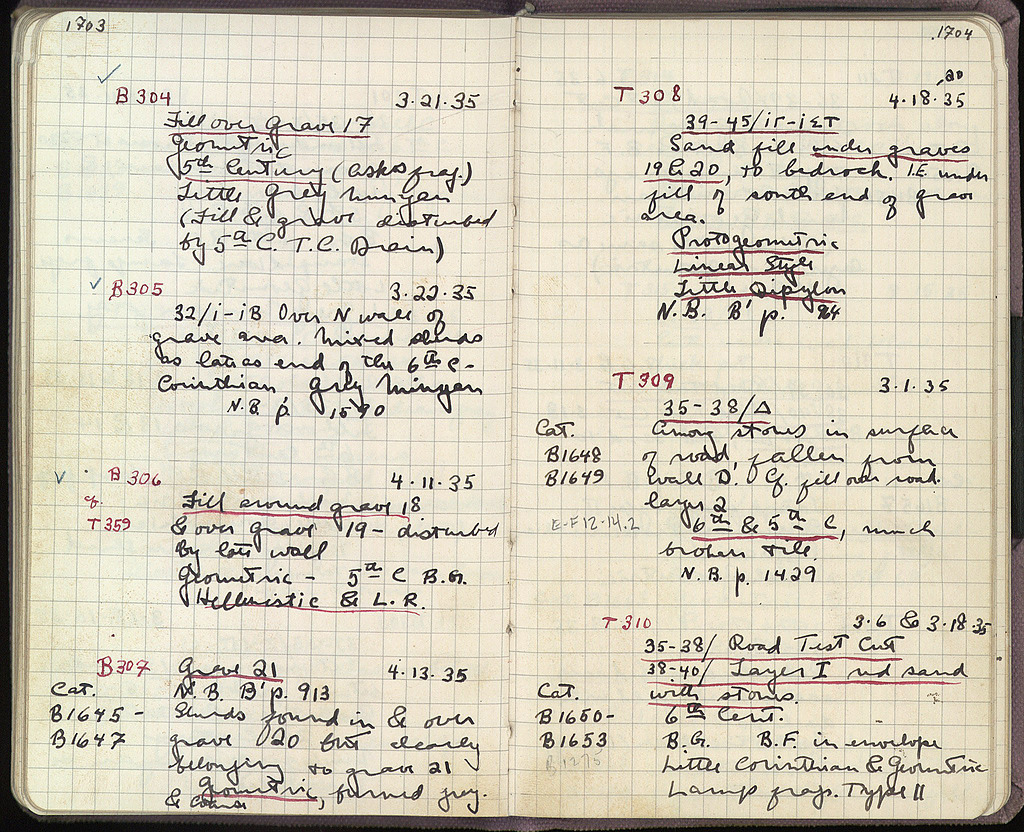 1703
B 304 3·21·35
Fill over Grave 17
Geometric
5th Century (askos frag.)
Little Grey Minyan
(Fill & grave disturbed
by 5th C. T.C. Drain)
B305 3·22·35
32/i-iB Over N wall of
grave area. Mixed sherds
as late as end of the 6th C-
Corinthian Grey Minyan
N.B. p. 1590
B 306 4·11·35
cf. Fill around grave 18
T359 & over grave 19- disturbed
by late wall
Geometric - 5th C B.G.
Hellenistic & L.R.
B307 Grave 21 4·13·35
Cat. N.B. B' p. 913
B1645 - Sherds found in & over
B1647 grave 20 but clearly
belonging to grave 21
Geometric, burned frag.
& coarse
1704
T308 4·18·35
,20
39-45/iΓ-iΣT
Sand fill under graves
19 & 20, to bedrock. I.E. under
fill of south end of grave
area.
Protogeometric
Linear Style
Little Dipylon
N.B. B' p. 964
T309 3·1·35
35-38/Δ
Cat. Among stones in surface
B1648 of road, fallen from
B1649 Wall D. Cf. fill over road.
layer 2
E-F 12-14.2 6th & 5th C, much
broken tile.
N.B. p. 1429
T310 3·6 & 3·18·35
35-38/ Road Test Cut
38-40/ Layer I rd sand
Cat. with stones.
B1650- 6th Cent.
B1653 B.G. B.F. in envelope
B1275 Little Corinthian & Geometric
Lamp frag. Type II